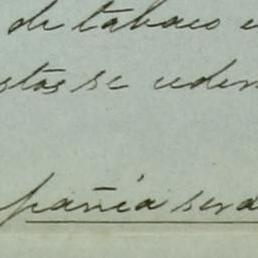 de tabaco e
stos se ceden
pañia será